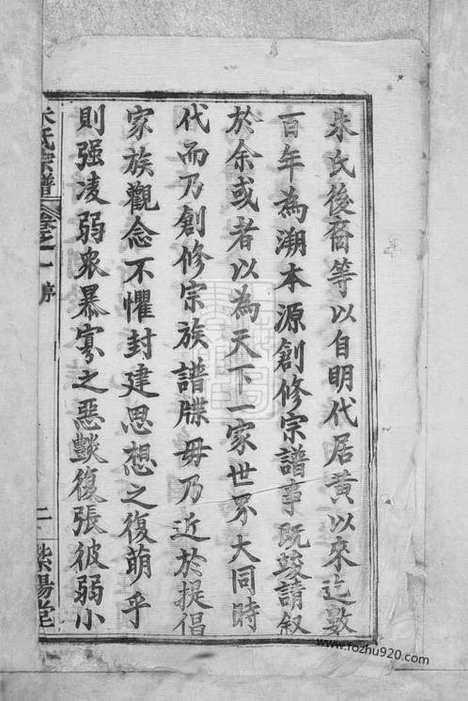 朱氏後裔等以自明代居黄以來迄數
百年為溯本源創修宗譜事既竣請叙
於余或者以為天下一家世界大同時
代而乃創修宗族譜牒毋乃近於提倡
家族觀念不懼封建思想之復萌乎
則强凌弱衆暴寡之惡燄復張彼弱小
朱氏宗譜 卷之一 序 二 紫陽堂
www.fozhu920.com